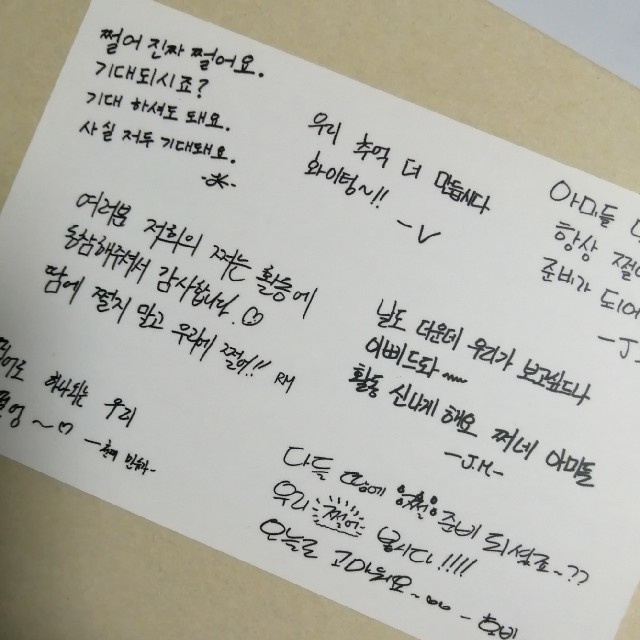 쩔어 진짜 쩔어요.
기대되시죠?
기대 하셔도 돼요.
사실 저두 기대돼요.
우리 추억 더 만듭시다
화이팅~!!
-V
아미들
항상
준비가 되어
-J.
여러분 저희의 쩌는 활동에
동참해주셔서 감사합니다. ♡
땀에 쩔지 말고 우리에 쩔어!! RM
날도 더운데 우리가 보고싶다
아삐드롸~~
활동 신나게 해요 쩌네 아미들
-J.M-
하나되는 우리
다들 땀에 준비 되셨죠~??
우리 쩔어 봅시다!!!!
오늘도 고마워요~